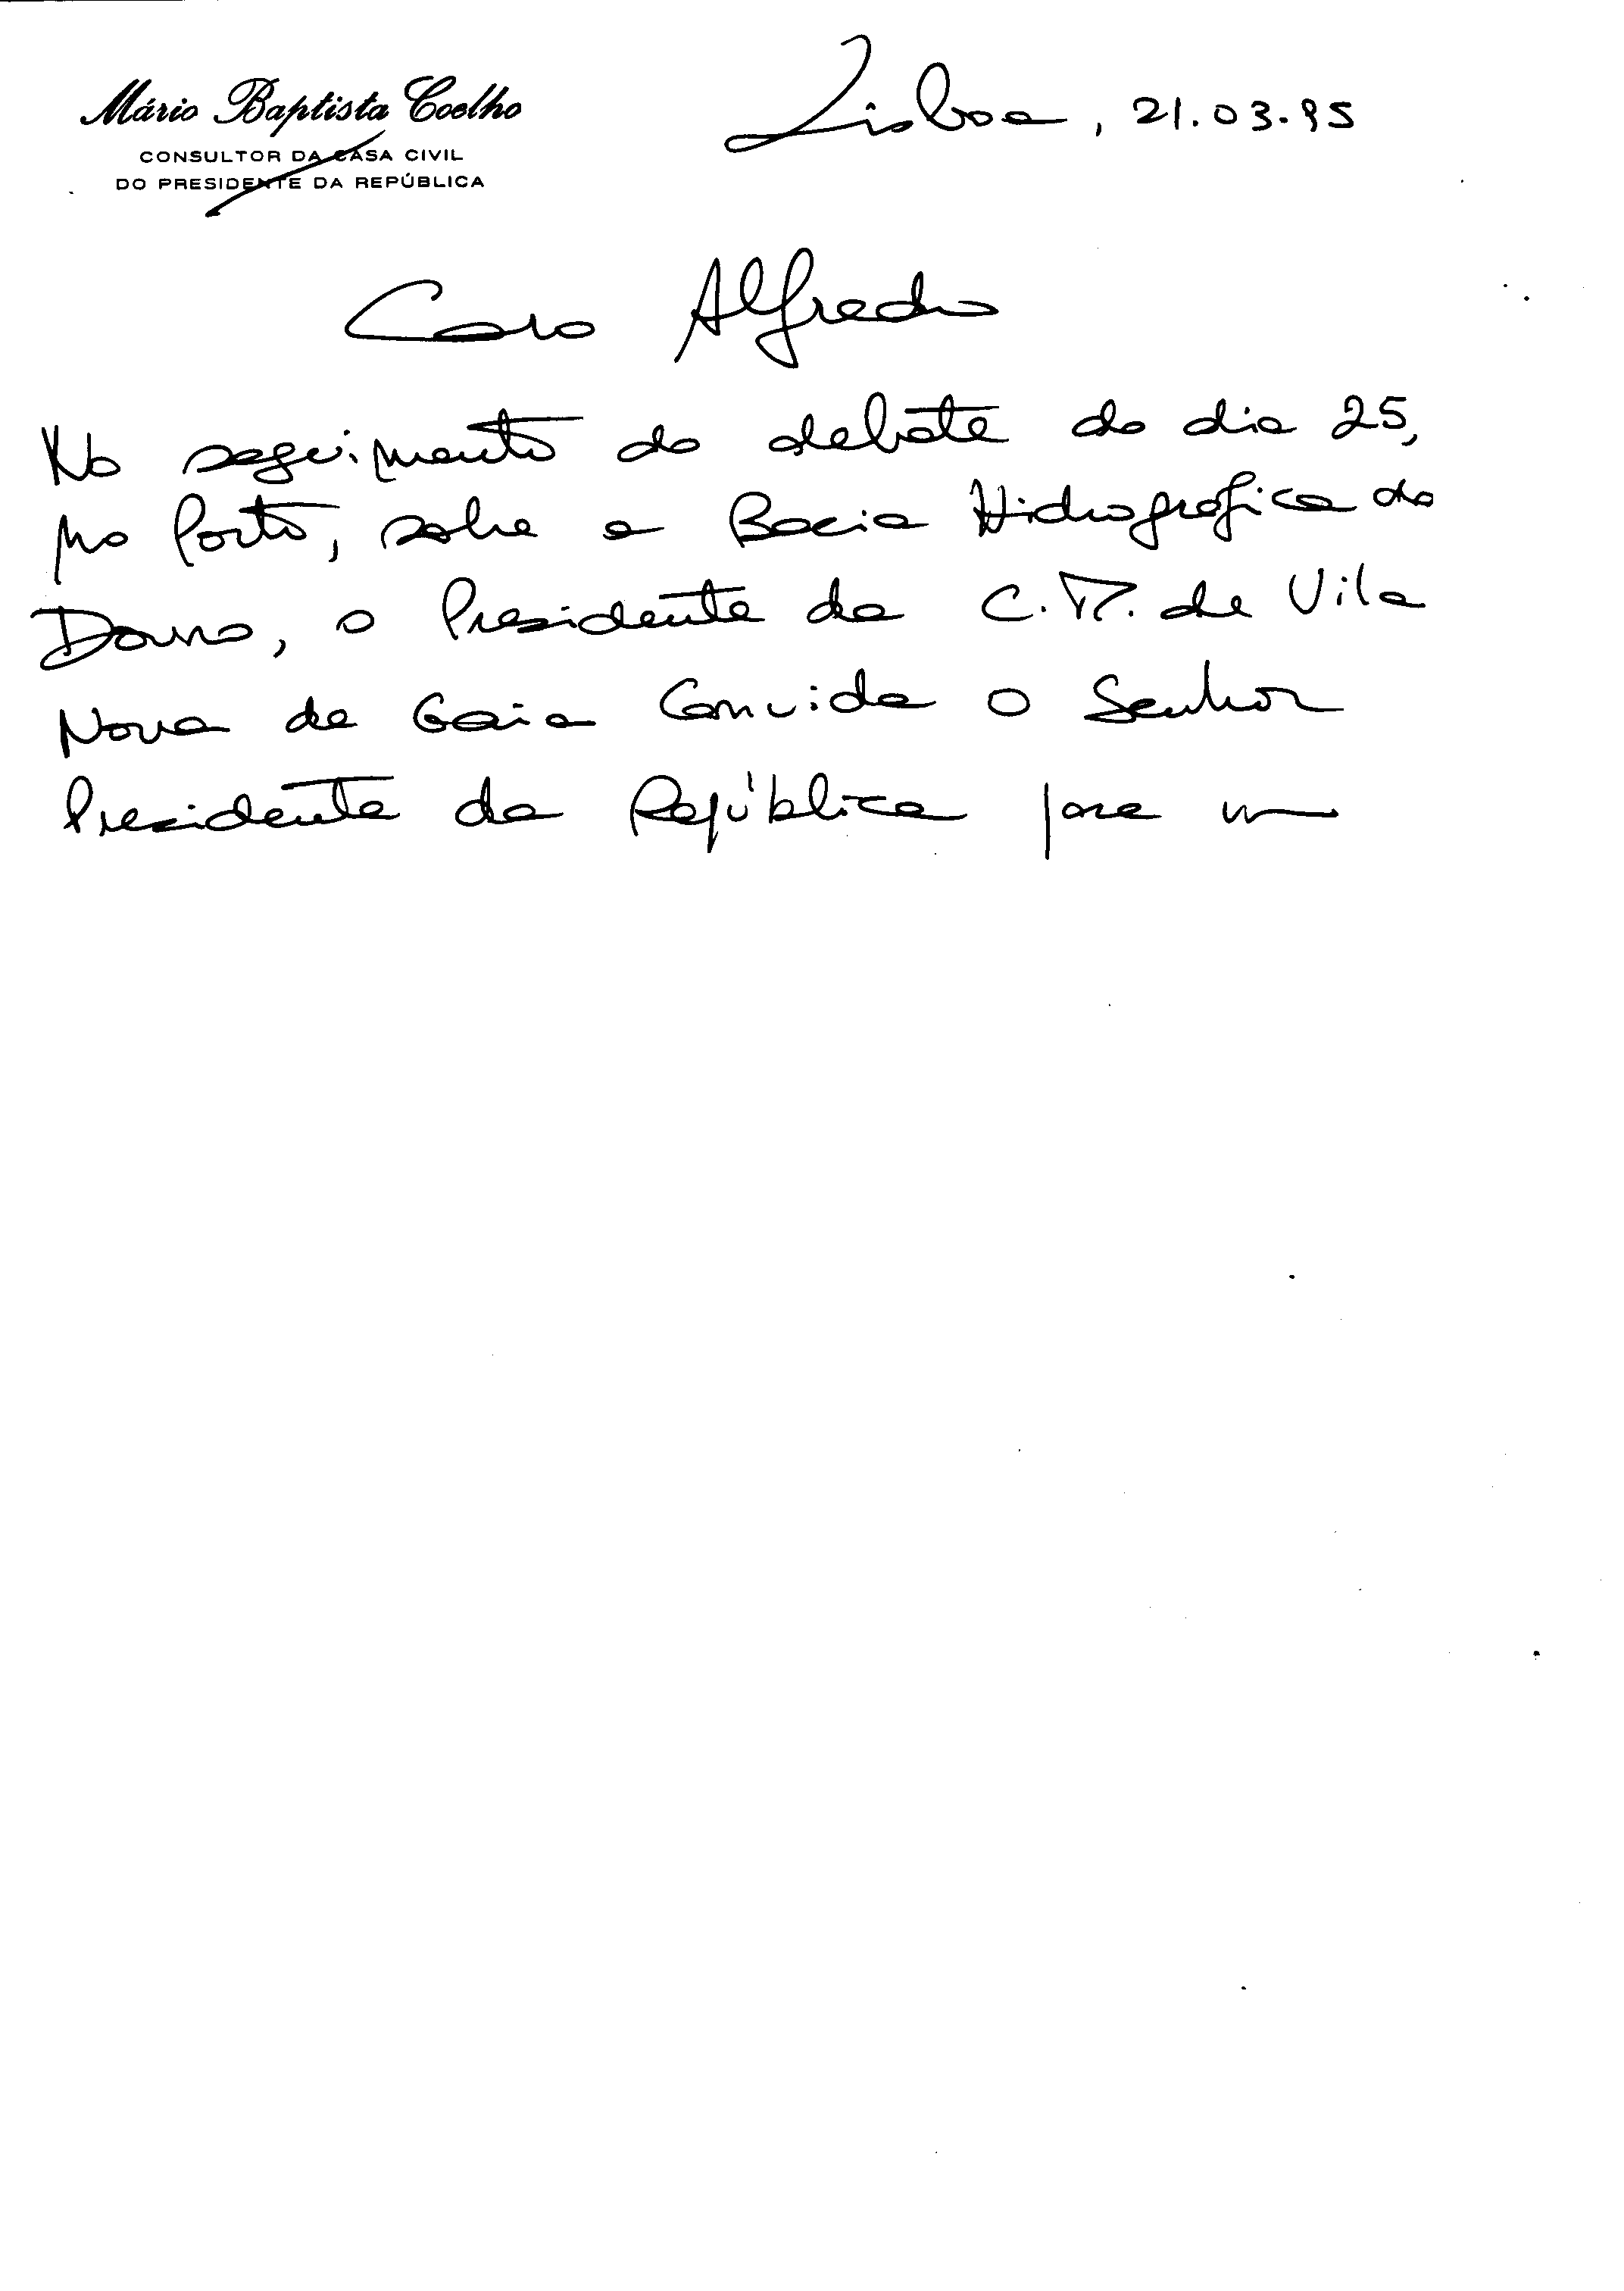 Mário Baptista Coelho
CONSULTOR DA CASA CIVIL
DO PRESIDENTE DA REPÚBLICA
Lisboa, 21.03.95
Caro Alfredo
No seguimento do debate do dia 25,
no Porto, sobre a Bacia Hidrográfica do
Douro, o Presidente da C.M. de Vila
Nova de Gaia convida o Senhor
Presidente da República para um